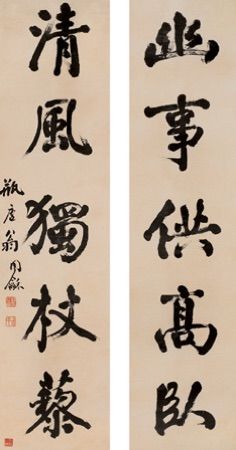 幽事供髙臥
清風獨杖藜
瓶廬翁同龢